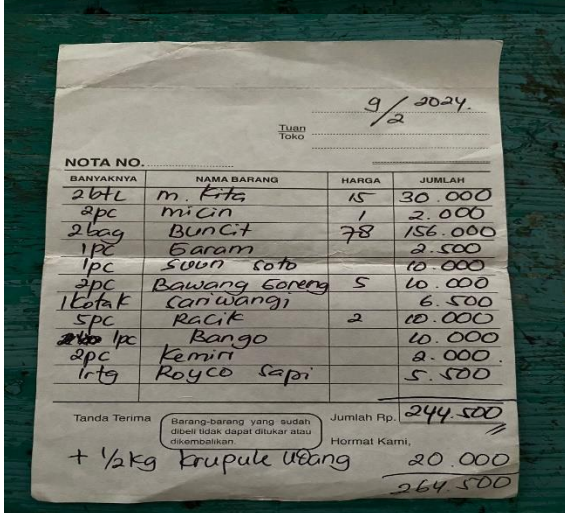 9/2 2024.
Tuan
Toko
NOTA NO.
BANYAKNYA NAMA BARANG HARGA JUMLAH
2btl m. Kita 15 30.000
2pc micin 1 2.000
2bag Buncit 78 156.000
1pc Garam 2.500
1pc Suun Soto 10.000
2pc Bawang Goreng 5 10.000
1kotak Sariwangi 6.500
5pc Racik 2 10.000
1pc Bango 10.000
2pc Kemiri 2.000.
1rtg Royco Sapi 5.500
Tanda Terima
Barang-barang yang sudah
dibeli tidak dapat ditukar atau
dikembalikan.
Jumlah Rp. 244.500
Hormat Kami,
+ 1/2kg Krupuk Udang 20.000
264.500